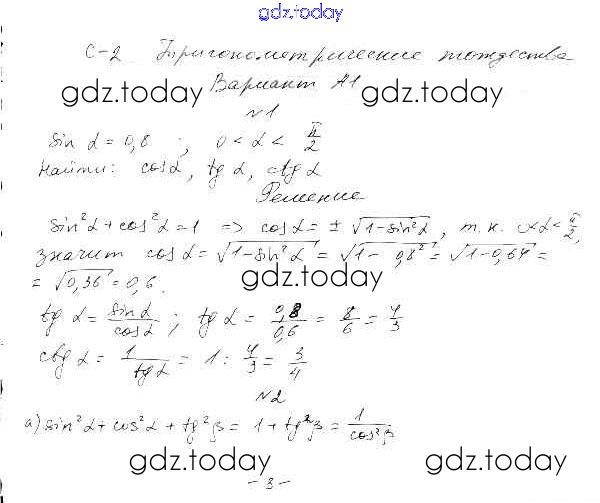 gdz.today
С-2 Тригонометрические тождества
Вариант А1
gdz.today gdz.today
№1
sin α = 0,8 ; 0 < α < π/2
Найти: cos α, tg α, ctg α
Решение
sin²α + cos²α = 1 => cos α = ± √(1-sin²α), т.к. 0<α<π/2,
значит cos α = √(1-sin²α) = √(1-0,8²) = √(1-0,64) =
= √0,36 = 0,6.
gdz.today
tg α = sin α/cos α ; tg α = 0,8/0,6 = 8/6 = 4/3
ctg α = 1/tg α = 1 : 4/3 = 3/4
№2
а) sin²α + cos²α + tg²β = 1 + tg²β = 1/cos²β
gdz.today gdz.today
- 3 -